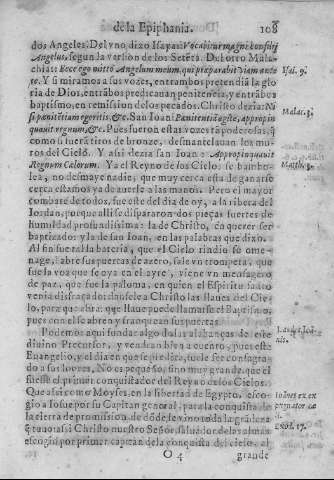 de la Epiphania. 108
dos Angeles. Del vno dizo Isayas: Vocabitur magni consilij
Angelus, segun la version de los Setẽta. Del otro Mala-
chias: Ecce ego mitto Angelum meum, qui præparabit viam ante
te. Y si miramos a sus vozes, entrambos pretendiã la glo
ria de Dios, entrãbos predicauan penitẽcia, y entrãbos
baptismo, en remission de los pecados. Christo dezia: Ni
si pœnitẽtiam egeritis, &c. San Ioan: Pœnitentiã agite, appropin
quauit regnum, &c. Pues fueron estas vozes tã poderosas, q̃
como si fuera tiros de bronze, desmantelauan los mu-
ros del Cielo. Y assi dezia san Ioan: Appropinquauit
Regnum Cælorum. Ya el Reyno de los Cielos se bambo-
lea, no desmaye nadie; que muy cerca esta de ganarse
cerca estamos ya de auerle a las manos. Pero el mayor
combate de todos, fue este del dia de oy, a la ribera del
Iordan, porque alli se dispararon dos pieças fuertes de
humildad profundissima: la de Christo, en querer ser
baptizado: y la de san Ioan, en las palabras que dixo.
Al fin fue tal la bateria, que el Cielo rindio su ome-
nage, abre sus puertas de azero, sale vn trompeta, que
fue la voz que se oya en el ayre, viene vn mensagero
de paz, que fue la paloma, en quien el Espiritu sancto
venia
lo, para que abra: que llaue puede llamarse el Baptismo,
pues con el se abren y franquean sus puertas.
Podemos aqui fundar algo de las alabanças de este
diuino Precursor, y vendran bien a cuento, pues este
Euangelio, y el dia en que se predica, fue le ser consagra-
do a sus loores. No es pequeño, sino muy grande, que el
fuesse el primer conquistador del Reyno de los Cielos.
Que assi como Moyses, en la libertad de Egypto, esco-
gio a Iosue por su Capitan general, para la conquista de
la tierra de promission, de dõde
q̃ tuuo assi Christo nuestro Señor, saluador de las almas
escogio por primer capitan de la conquista del cielo, al
O 4 grande
Isai. 9.
Malac. 3.
Matth. 3.
Exod. 17.